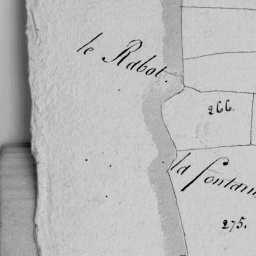 le Rabot.
266.
la fontain
275.